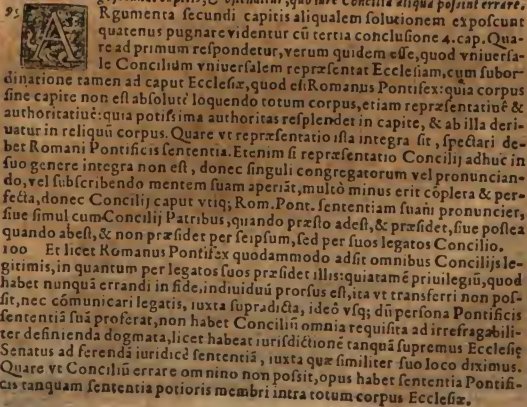 95 ARgumenta secundi capitis aliqualem solutionem exposcunt
quatenus pugnare videntur cū tertia conclusione 4. cap. Qua-
re ad primum respondetur, verum quidem esse, quod vniuersa-
le Concilium vniuersalem repræsentat Ecclesiam, cum subor-
dinatione tamen ad caput Ecclesiæ, quod est Romanus Pontifex: quia corpus
sine capite non est absolutè loquendo totum corpus, etiam repræsentatiuè &
authoritatiuè: quia potissima authoritas resplendet in capite, & ab illa deri-
uatur in reliquū corpus. Quare vt repræsentatio ista integra sit, spectari de-
bet Romani Pontificis sententia. Etenim si repræsentatio Concilij adhuc in
suo genere integra non est, donec singuli congregatorum vel pronuncian-
do, vel subscribendo mentem suam aperiāt, multò minus erit cōpleta & per-
fecta, donec Concilij caput vtiq; Rom. Pont. sententiam suam pronunciet,
siue simul cum Concilij Patribus, quando præsto adest, & præsidet, siue postea
quando abest, & non præsidet per seipsum, sed per suos legatos Concilio.
100 Et licet Romanus Pontifex quodammodo adsit omnibus Concilijs le-
gitimis, in quantum per legatos suos præsidet illis: quia tamē priuilegiū, quod
habet nunquā errandi in fide, indiuiduū prorsus est, ita vt transferri non pos-
sit, nec cōmunicari legatis, iuxta supradicta, ideo vsq; dū persona Pontificis
sententiā suā proferat, non habet Conciliū omnia requisita ad irrefragabili-
ter definienda dogmata, licet habeat iurisdictionē tanquā supremus Ecclesię
Senatus ad ferendā iuridicè sententiā, iuxta quæ similiter suo loco diximus.
Quare vt Conciliū errare omnino non possit, opus habet sententia Pontifi-
cis tanquam sententia potioris membri intra totum corpus Ecclesiæ.